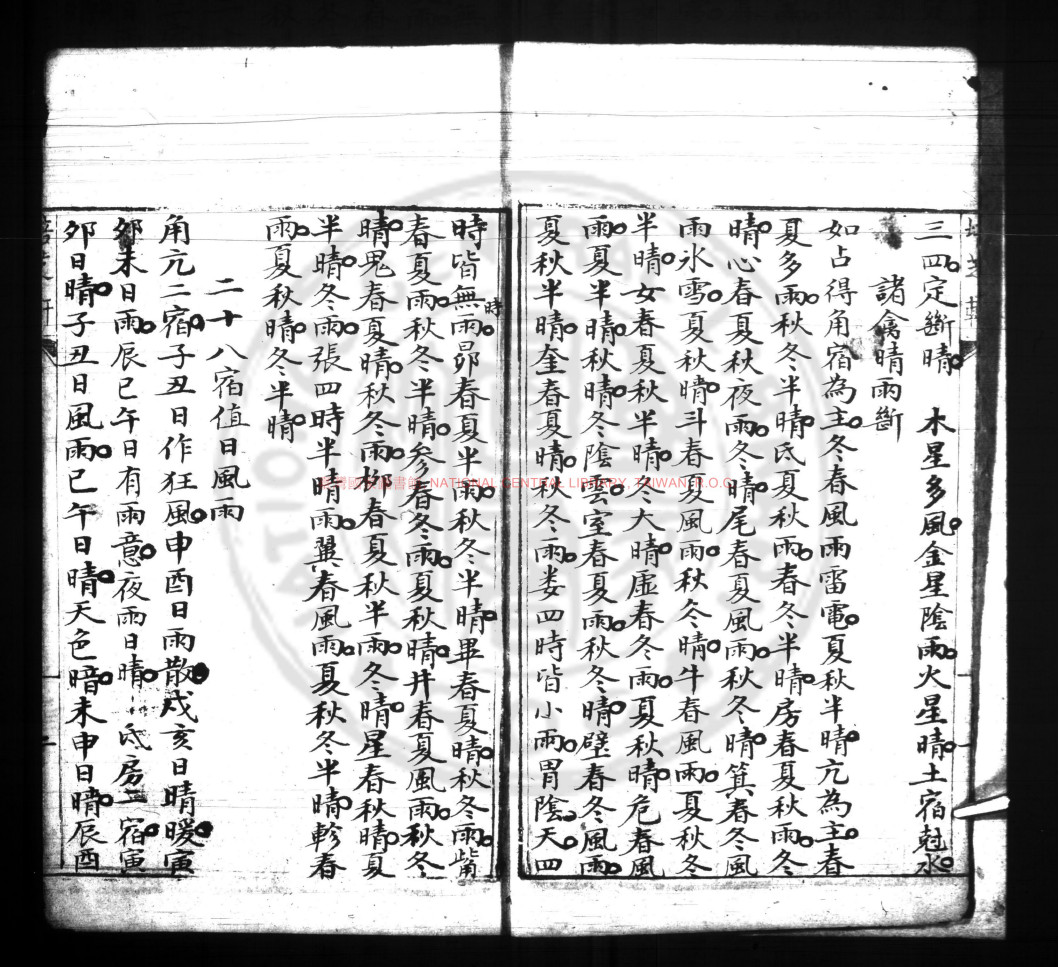 三四定斷晴 木星多風金星陰雨火星晴土宿尅水
諸禽晴雨斷
如占得角宿為主冬春風雨雷電夏秋半晴亢為主春
夏多雨秋冬半晴氐夏秋雨春冬半晴房春夏秋雨冬
晴心春夏秋夜雨冬晴尾春夏風雨秋冬晴箕春冬風
雨氷雪夏秋晴斗春夏風雨秋冬晴牛春風雨夏秋冬
半晴女春夏秋半晴冬大晴虛春冬雨夏秋晴危春風
雨夏半晴秋晴冬陰雲室春夏雨秋冬晴壁春冬風雨
夏秋半晴奎春夏晴秋冬雨娄四時皆小雨胃陰天四
時皆無雨昴春夏半雨秋冬半晴畢春夏晴秋冬雨觜
時
春夏雨秋冬半晴參春冬雨夏秋晴井春夏風雨秋冬
晴鬼春夏晴秋冬雨柳春夏秋半雨冬晴星春秋晴夏
半晴冬雨張四時半晴雨翼春風雨夏秋冬半晴軫春
雨夏秋晴冬半晴
二十八宿值日風雨
角亢二宿子丑日作狂風申酉日雨散戌亥日晴暖寅
夘未日雨辰巳午日有雨意夜雨日晴 氐房二宿寅
夘日晴子丑日風雨巳午日晴天色暗未申日晴辰酉
NATIONAL CENTRAL LIBRARY, TAIWAN, R.O.C